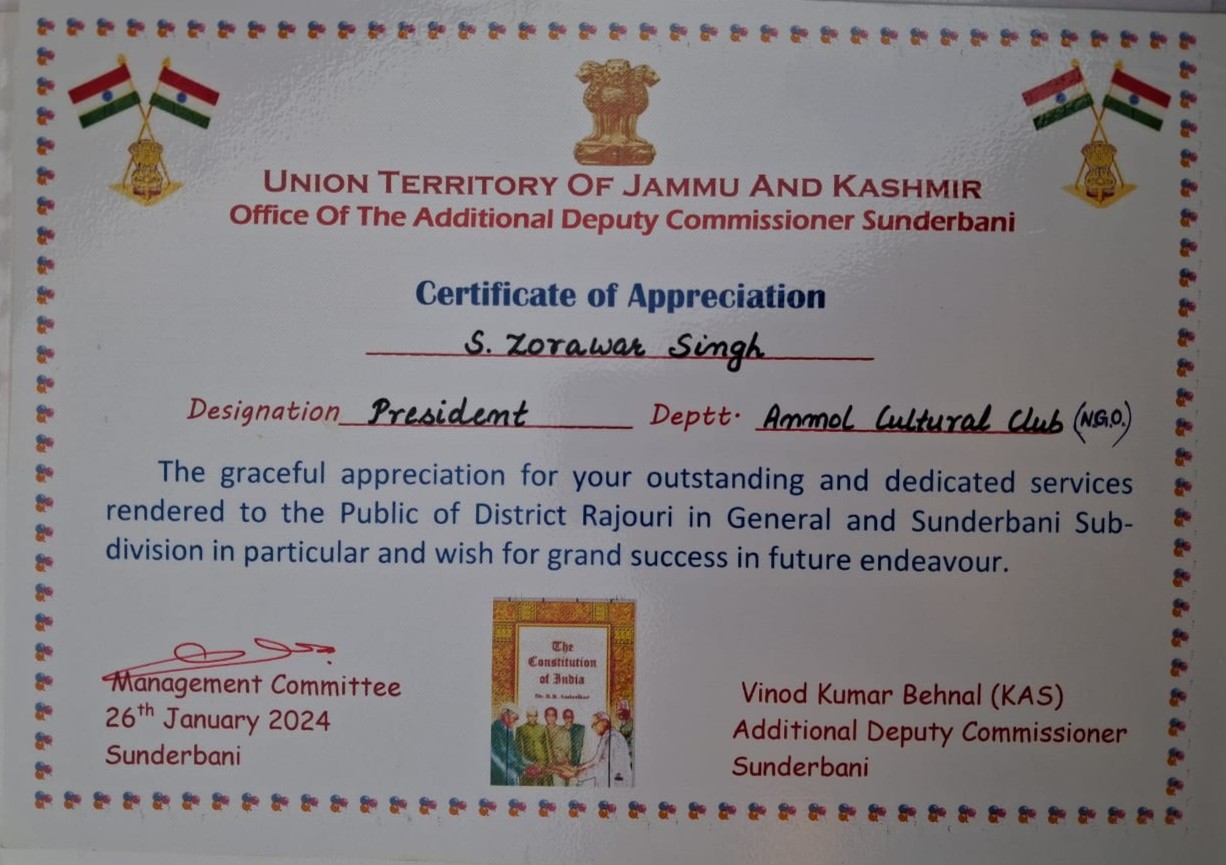 UNION TERRITORY OF JAMMU AND KASHMIR
Office Of The Additional Deputy Commissioner Sunderbani
Certificate of Appreciation
S. Zorawar Singh
Designation President Deptt. Anmol Cultural Club (N.G.O.)
The graceful appreciation for your outstanding and dedicated services
rendered to the Public of District Rajouri in General and Sunderbani Sub-
division in particular and wish for grand success in future endeavour.
The
Constitution
of India
Dr. B.R. Ambedkar
Management Committee
26th January 2024
Sunderbani
Vinod Kumar Behnal (KAS)
Additional Deputy Commissioner
Sunderbani